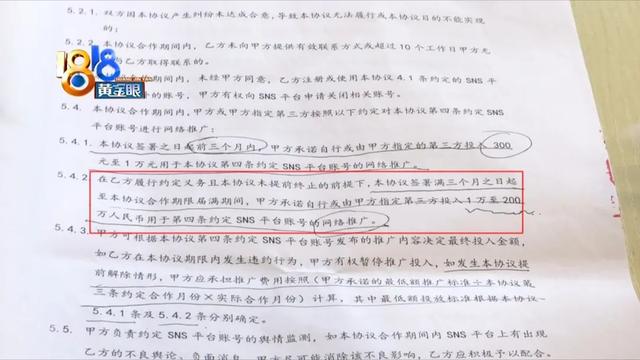 5.2.1. 双方因本协议产生纠纷未达成合意,导致本协议无法履行或本协议目的不能实现
的;
5.2.2. 本协议合作期间内,乙方未向甲方提供有效联系方式或超过10个工作日甲方无
与乙方取得联系的。
期间内,未经甲方同意,乙方注册或使用本协议4.1条约定的SNS平
的账号,甲方有权向SNS平台申请关闭相关账号。
1818
黄金眼
5.4. 本协议合作期间内,甲方或甲方指定第三方按照以下约定对本协议第四条约定SNS
平台账号进行网络推广:
5.4.1. 本协议签署之日起前三个月内,甲方承诺自行或由甲方指定的第三方投入300
元至1万元用于本协议第四条约定SNS平台账号的网络推广。
5.4.2 在乙方履行约定义务且本协议未提前终止的前提下,本协议签署满三个月之日起
至本协议合作期限届满期间,甲方承诺自行或由甲方指定第三方投入1万至200
万人民币用于第四条约定SNS平台账号的网络推广。
5.4.3 甲方可根据本协议第四条约定SNS平台账号发布的推广内容决定最终投入金额,
如乙方在本协议期限内发生违约行为,甲方有权暂停推广投入,如发生本协议提
前解除情形,甲方应承担推广费用按照(甲方承诺的最低额推广标准÷本协议第
三条约定合作月份×实际合作月份)计算,其中最低额投放标准根据本协议
5.4.1条及5.4.2条分别确定。
5.5. 甲方负责约定SNS平台账号的舆情监测,如本协议合作期间内SNS平台上有出现
乙方的不良舆论、负面消息,甲方尽可能消除该不良影响,乙方应积极予以配合。